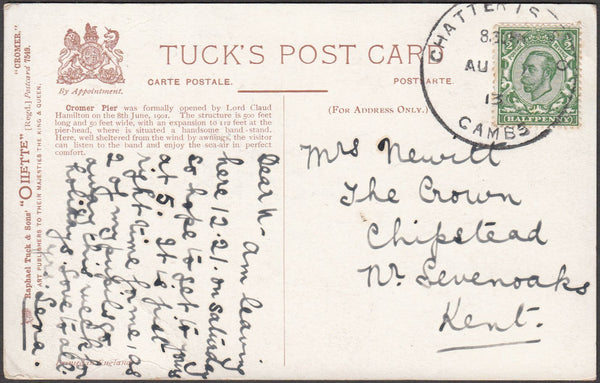 TUCK'S POST CARD
CARTE POSTALE.
POSTKARTE.
By Appointment.
(FOR ADDRESS ONLY.)
Cromer Pier was formally opened by Lord Claud
Hamilton on the 8th June, 1901. The structure is 500 feet
long and 50 feet wide, with an expansion to 112 feet at the
pier-head, where is situated a handsome band-stand.
Here, well sheltered from the wind by awnings, the visitor
can listen to the band and enjoy the sea-air in perfect
comfort.
"CROMER."
[Regd.] Postcard 7549.
Raphael Tuck & Sons' "OILETTE"
ART PUBLISHERS TO THEIR MAJESTIES THE KING & QUEEN.
Dear N - Am leaving
here 12.21. on Saturday
so hope to get to yours
at 5. It is just
right time for me, as
2 of my pupils go
away this week for
holidays. Love to all.
Yrs. Gena.
England
CHATTERIS
AU
13
CAMBS
HALFPENNY
Mrs Newitt
The Crown
Chipstead
Nr. Sevenoaks
Kent.